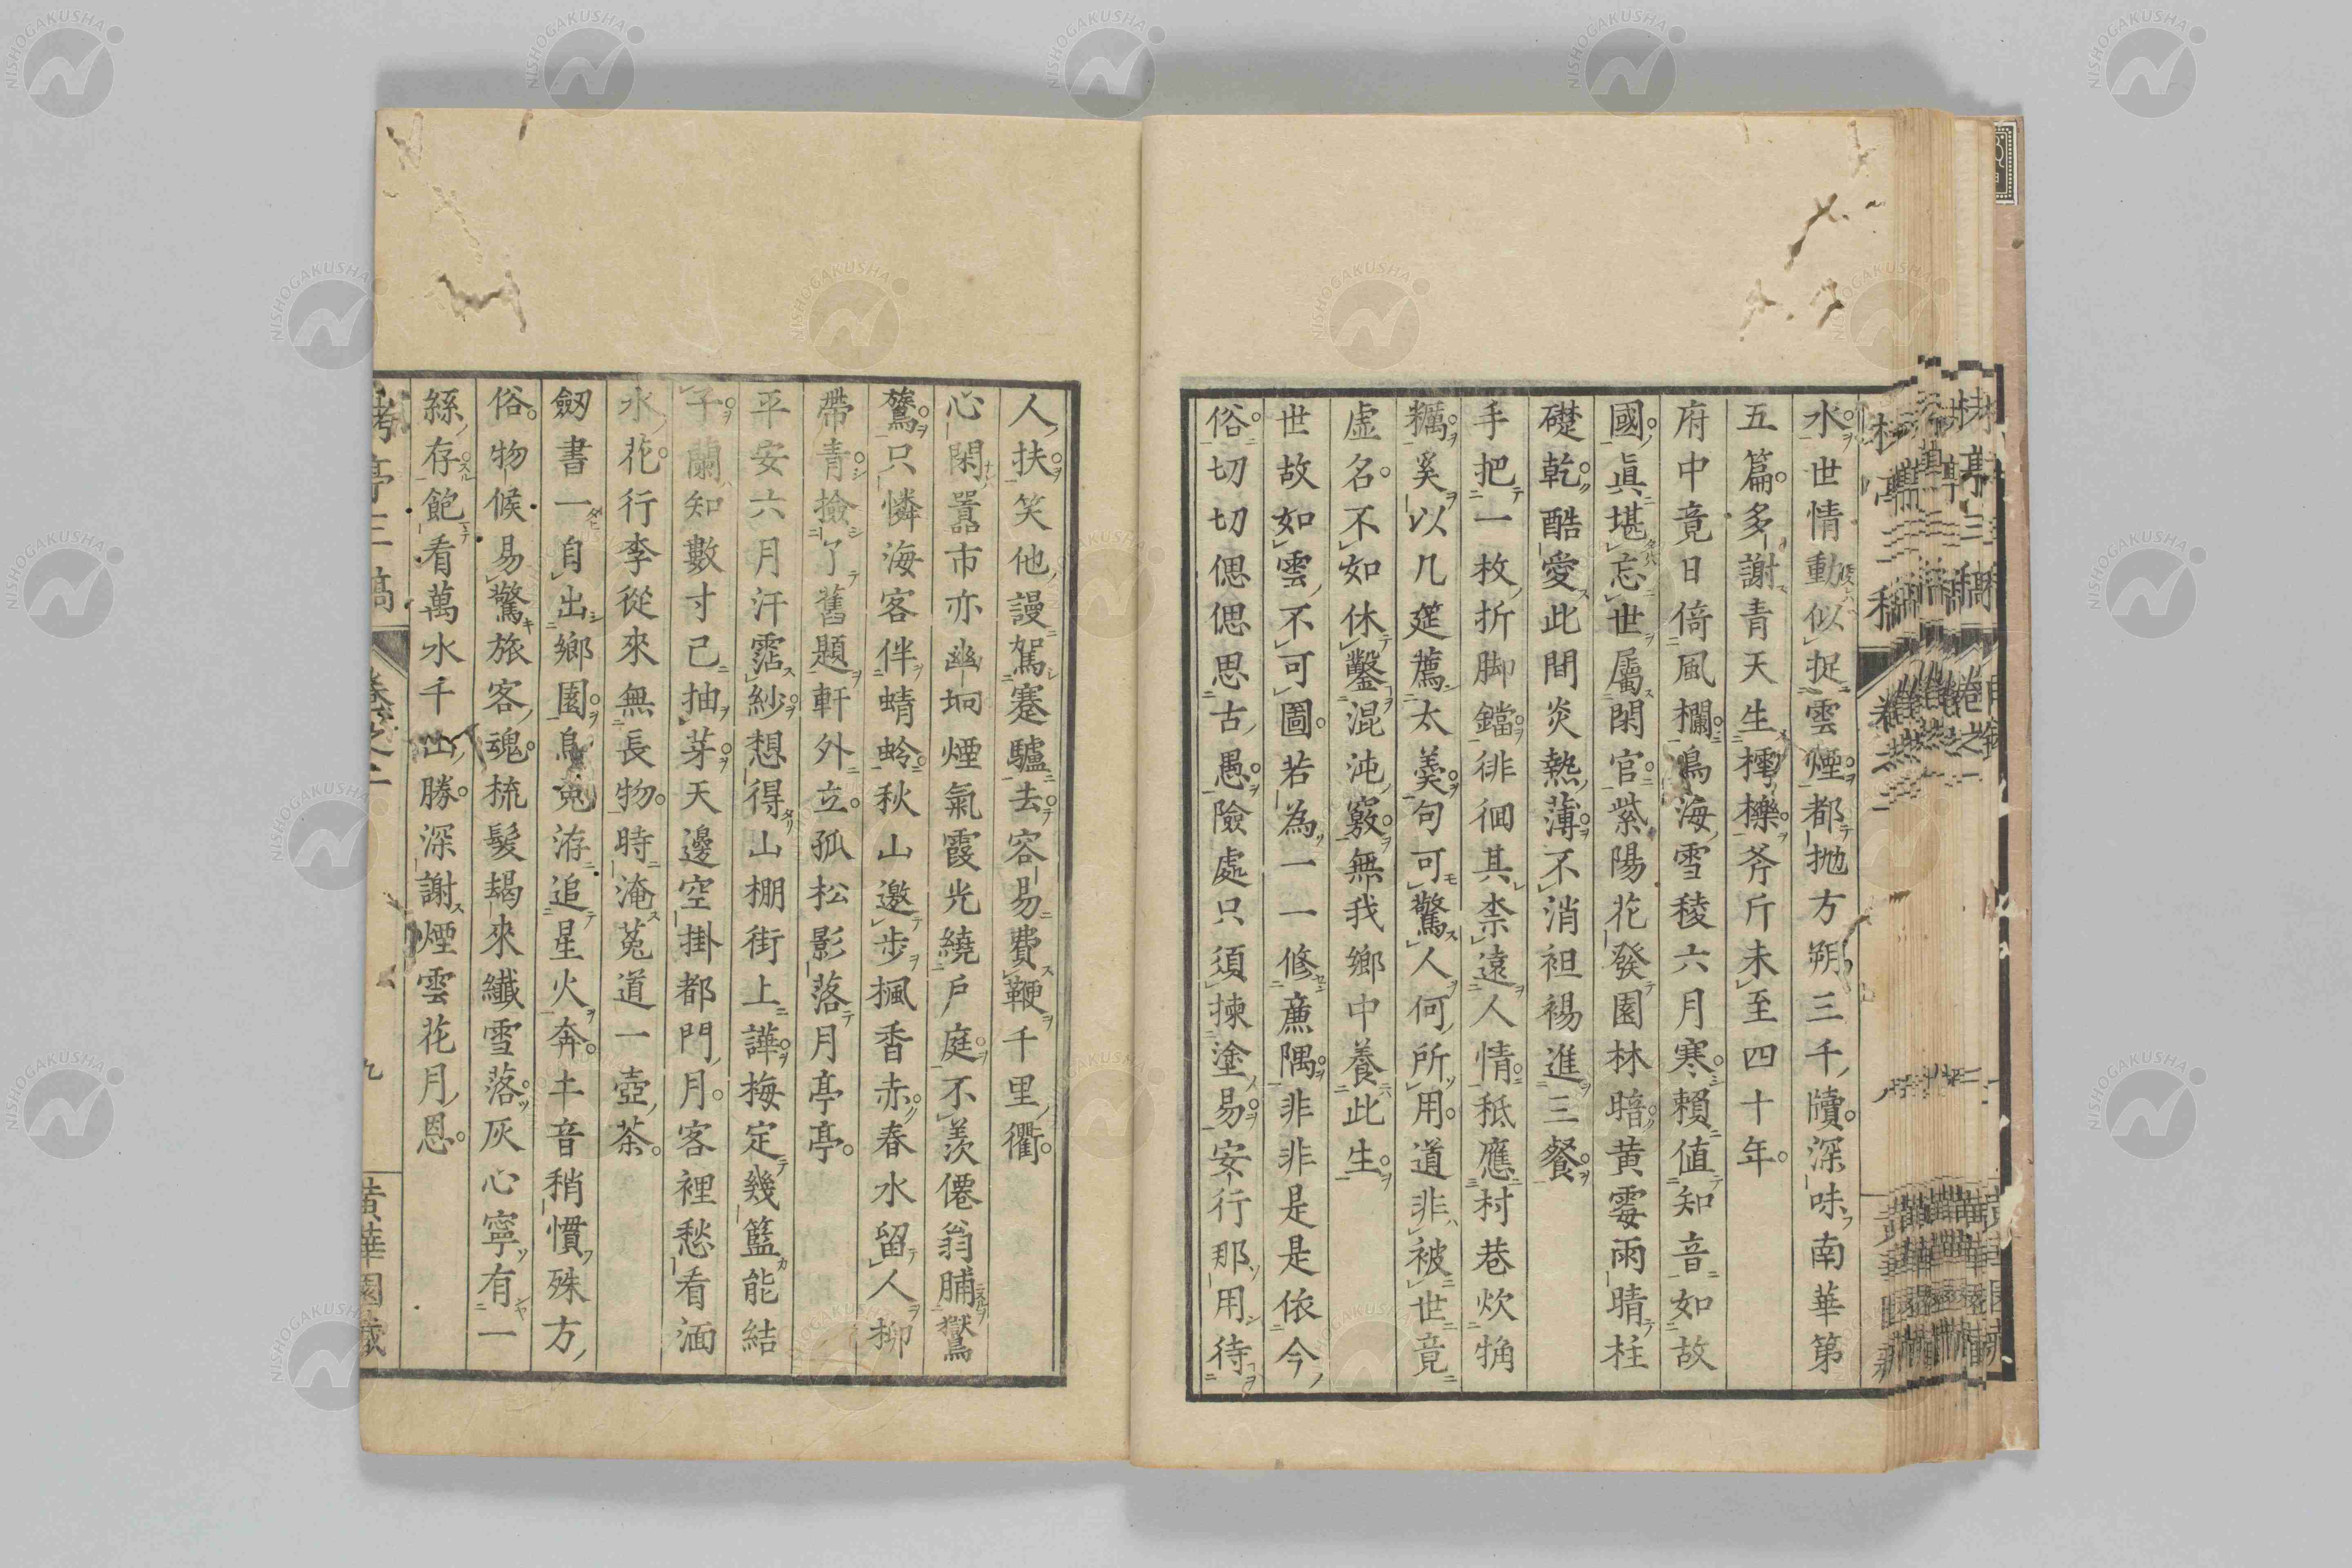 水世情動似捉雲煙都抛方朔三千牘深味南華第
五篇多謝青天生樗櫟斧斤未至四十年
府中竟日倚風欄鳥海雪稜六月寒賴値知音如故
國眞堪忘世屬閑官紫陽花發園林暗黄霉雨晴柱
礎乾酷愛此間炎熱薄不消袒裼進三餐
手把一枚折脚鐺徘徊其柰遠人情秪應村巷炊
糲奚以几筵薦太羮句可驚人何所用道非被世竟
虚名不如休鑿混沌竅無我鄉中養此生
世故如雲不可圖若為一一修廉隅非非是是依今
俗切切偲偲思古愚險處只須揀塗易安行那用待
人扶笑他謾駕蹇驢去容易費鞭千里衢
心閑囂市亦幽坰煙氣霞光繞戶庭不羨僊翁脯
鶿只憐海客伴蜻蛉秋山邀步楓香赤春水留人柳
帶青撿了舊題軒外立孤松影落月亭亭
平安六月汗霑紗想得山棚街上譁梅定幾籃能結
子蘭知數寸已抽芽天邊空掛都門月客裡愁看湎
水花行李從來無長物時淹菟道一壺茶
劒書一自出鄉園烏兎洊追星火奔土音稍慣殊方
俗物候易驚旅客魂梳髮朅來纖雪落灰心寧有一
絲存飽看萬水千山勝深謝煙雲花月恩
亭三稿
卷之二
九
黄華園藏
NISHOGAKUSHA